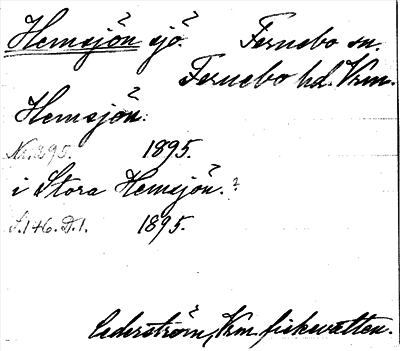 Hemsjön sjö. Fernebo sn.
Fernebo hd. Vrm.
Hemsjön:
Nr. 295. 1895.
i Stora Hemsjön. ?
S. 146. D. 1. 1895.
Cederström, Vrm. fiskevatten.